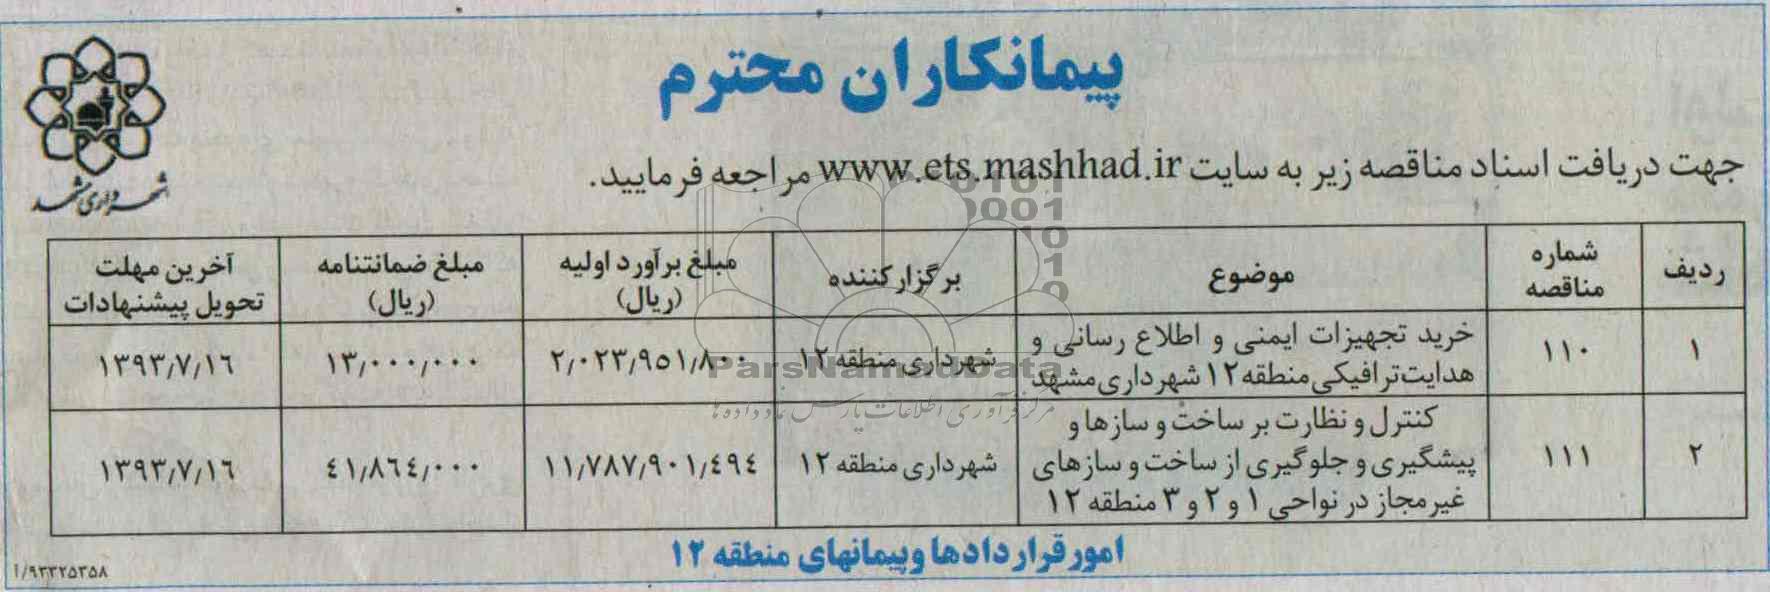 پیمانکاران محترم
شهرداری مشهد
جهت دریافت اسناد مناقصه زیر به سایت www.ets.mashhad.ir مراجعه فرمایید.
ردیف
شماره
مناقصه
موضوع
برگزارکننده
مبلغ برآورد اولیه
(ریال)
مبلغ ضمانتنامه
(ریال)
آخرین مهلت
تحویل پیشنهادات
۱
۱۱۰
خرید تجهیزات ایمنی و اطلاع رسانی و
هدایت ترافیکی منطقه ۱۲ شهرداری مشهد
شهرداری منطقه ۱۲
۲٫۰۲۳٫۹۵۱٫۸۰۰
۱۳٫۰۰۰٫۰۰۰
۱۳۹۳٫۷٫۱۶
۲
۱۱۱
کنترل و نظارت بر ساخت و سازها و
پیشگیری و جلوگیری از ساخت و سازهای
غیرمجاز در نواحی ۱ و ۲ و ۳ منطقه ۱۲
شهرداری منطقه ۱۲
۱۱٫۷۸۷٫۹۰۱٫۴۹۴
۴۱٫۸۶۴٫۰۰۰
۱۳۹۳٫۷٫۱۶
امور قراردادها و پیمانهای منطقه ۱۲
۹۳۳۲۵۳۵۸/آ
ParsNamadData
مرکز فرآوری اطلاعات پارس نماد داده ها